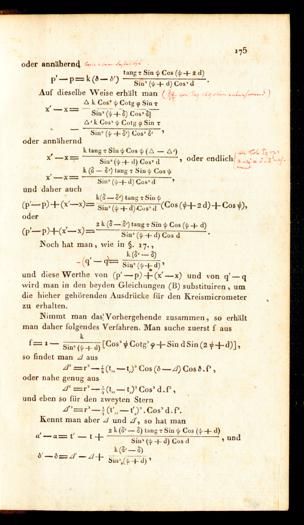 175
oder annähernd
p' — p = k (δ — δ') tang τ Sin ψ Cos (ψ + 2 d) / Sin² (ψ + d) Cos² d .
Auf dieselbe Weise erhält man
x' — x = Δ k Cos ψ Cotg φ Sin τ / Sin² (ψ + δ) Cos² δ
— Δ' k Cos ψ Cotg φ Sin τ / Sin² (ψ + δ') Cos² δ' ,
oder annähernd
x' — x = k tang τ Sin ψ Cos ψ (Δ — Δ') / Sin² (ψ + d) Cos² d , oder endlich
x' — x = k (δ — δ') tang τ Sin ψ Cos ψ / Sin² (ψ + d) Cos² d ,
und daher auch
(p' — p) + (x' — x) = k (δ — δ') tang τ Sin ψ / Sin² (ψ + d) Cos² d (Cos (ψ + 2 d) + Cos ψ),
oder
(p' — p) + (x' — x) = 2 k (δ' — δ) tang τ Sin ψ Cos (ψ + d) / Sin² (ψ + d) Cos d .
Noch hat man, wie in §. 17.,
— (q' — q) = k (δ' — δ) / Sin² (ψ + d) ,
und diese Werthe von (p' — p) + (x' — x) und von q' — q
wird man in den beyden Gleichungen (B) substituiren, um
die hieher gehörenden Ausdrücke für den Kreismicrometer
zu erhalten.
Nimmt man das Vorhergehende zusammen, so erhält
man daher folgendes Verfahren. Man suche zuerst f aus
f = 1 — k / Sin² (ψ + d) [Cos² ψ Cotg² φ + Sin d Sin (2 ψ + d)],
so findet man Δ aus
Δ² = r² — ¼ (t,, — t,)² Cos (δ — Δ) Cos δ. f² ,
oder nahe genug aus
Δ² = r² — ¼ (t,, — t,)² Cos² d. f² ,
und eben so für den zweyten Stern
Δ'² = r² — ¼ (t',, — t',)² . Cos² d. f² .
Kennt man aber Δ und Δ', so hat man
α' — α = t' — t + 2 k (δ' — δ) tang τ Sin ψ Cos (ψ + d) / Sin² (ψ + d) Cos d , und
δ' — δ = Δ' — Δ + k (δ' — δ) / Sin² (ψ + d) ,